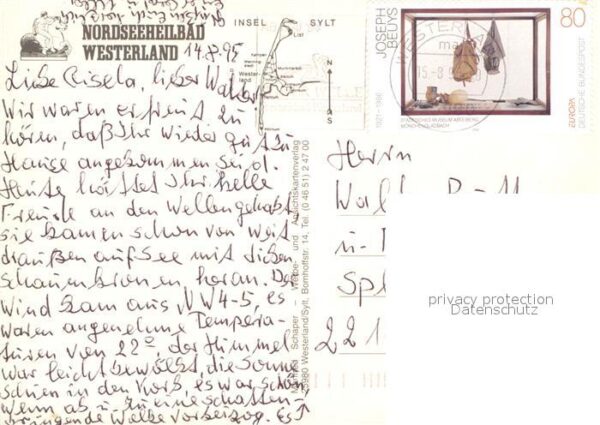 NORDSEEHEILBAD
WESTERLAND
14.8.95
INSEL SYLT
List
Wester-
land
N
S
JOSEPH
BEUYS
1921-1986
80
DEUTSCHE BUNDESPOST
EUROPA
STÄDTISCHES MUSEUM ABTEIBERG
MÖNCHENGLADBACH
Liebe Gisela, lieber Walter
Wir waren erfreut zu
hören, daß Ihr wieder gut zu
Hause angekommen seid.
Heute hättet Ihr helle
Freude an den Wellen gehabt,
sie kamen schon von weit
draußen auf See mit dicken
Schaumkronen heran. Der
Wind kam aus NW 4-5, es
waren angenehme Tempera-
turen von 22°, der Himmel
war leicht bewölkt, die Sonne
schien in den Korb es war schön,
wenn ab u. zu eine schatten-
bringende Wolke vorbeizog. Es
Schaper - Werbe- und Ansichtskartenverlag
Westerland/Sylt, Bomhoffstr. 14, Tel. (0 46 51) 2 47 00
Herrn
u.
221
privacy protection
Datenschutz